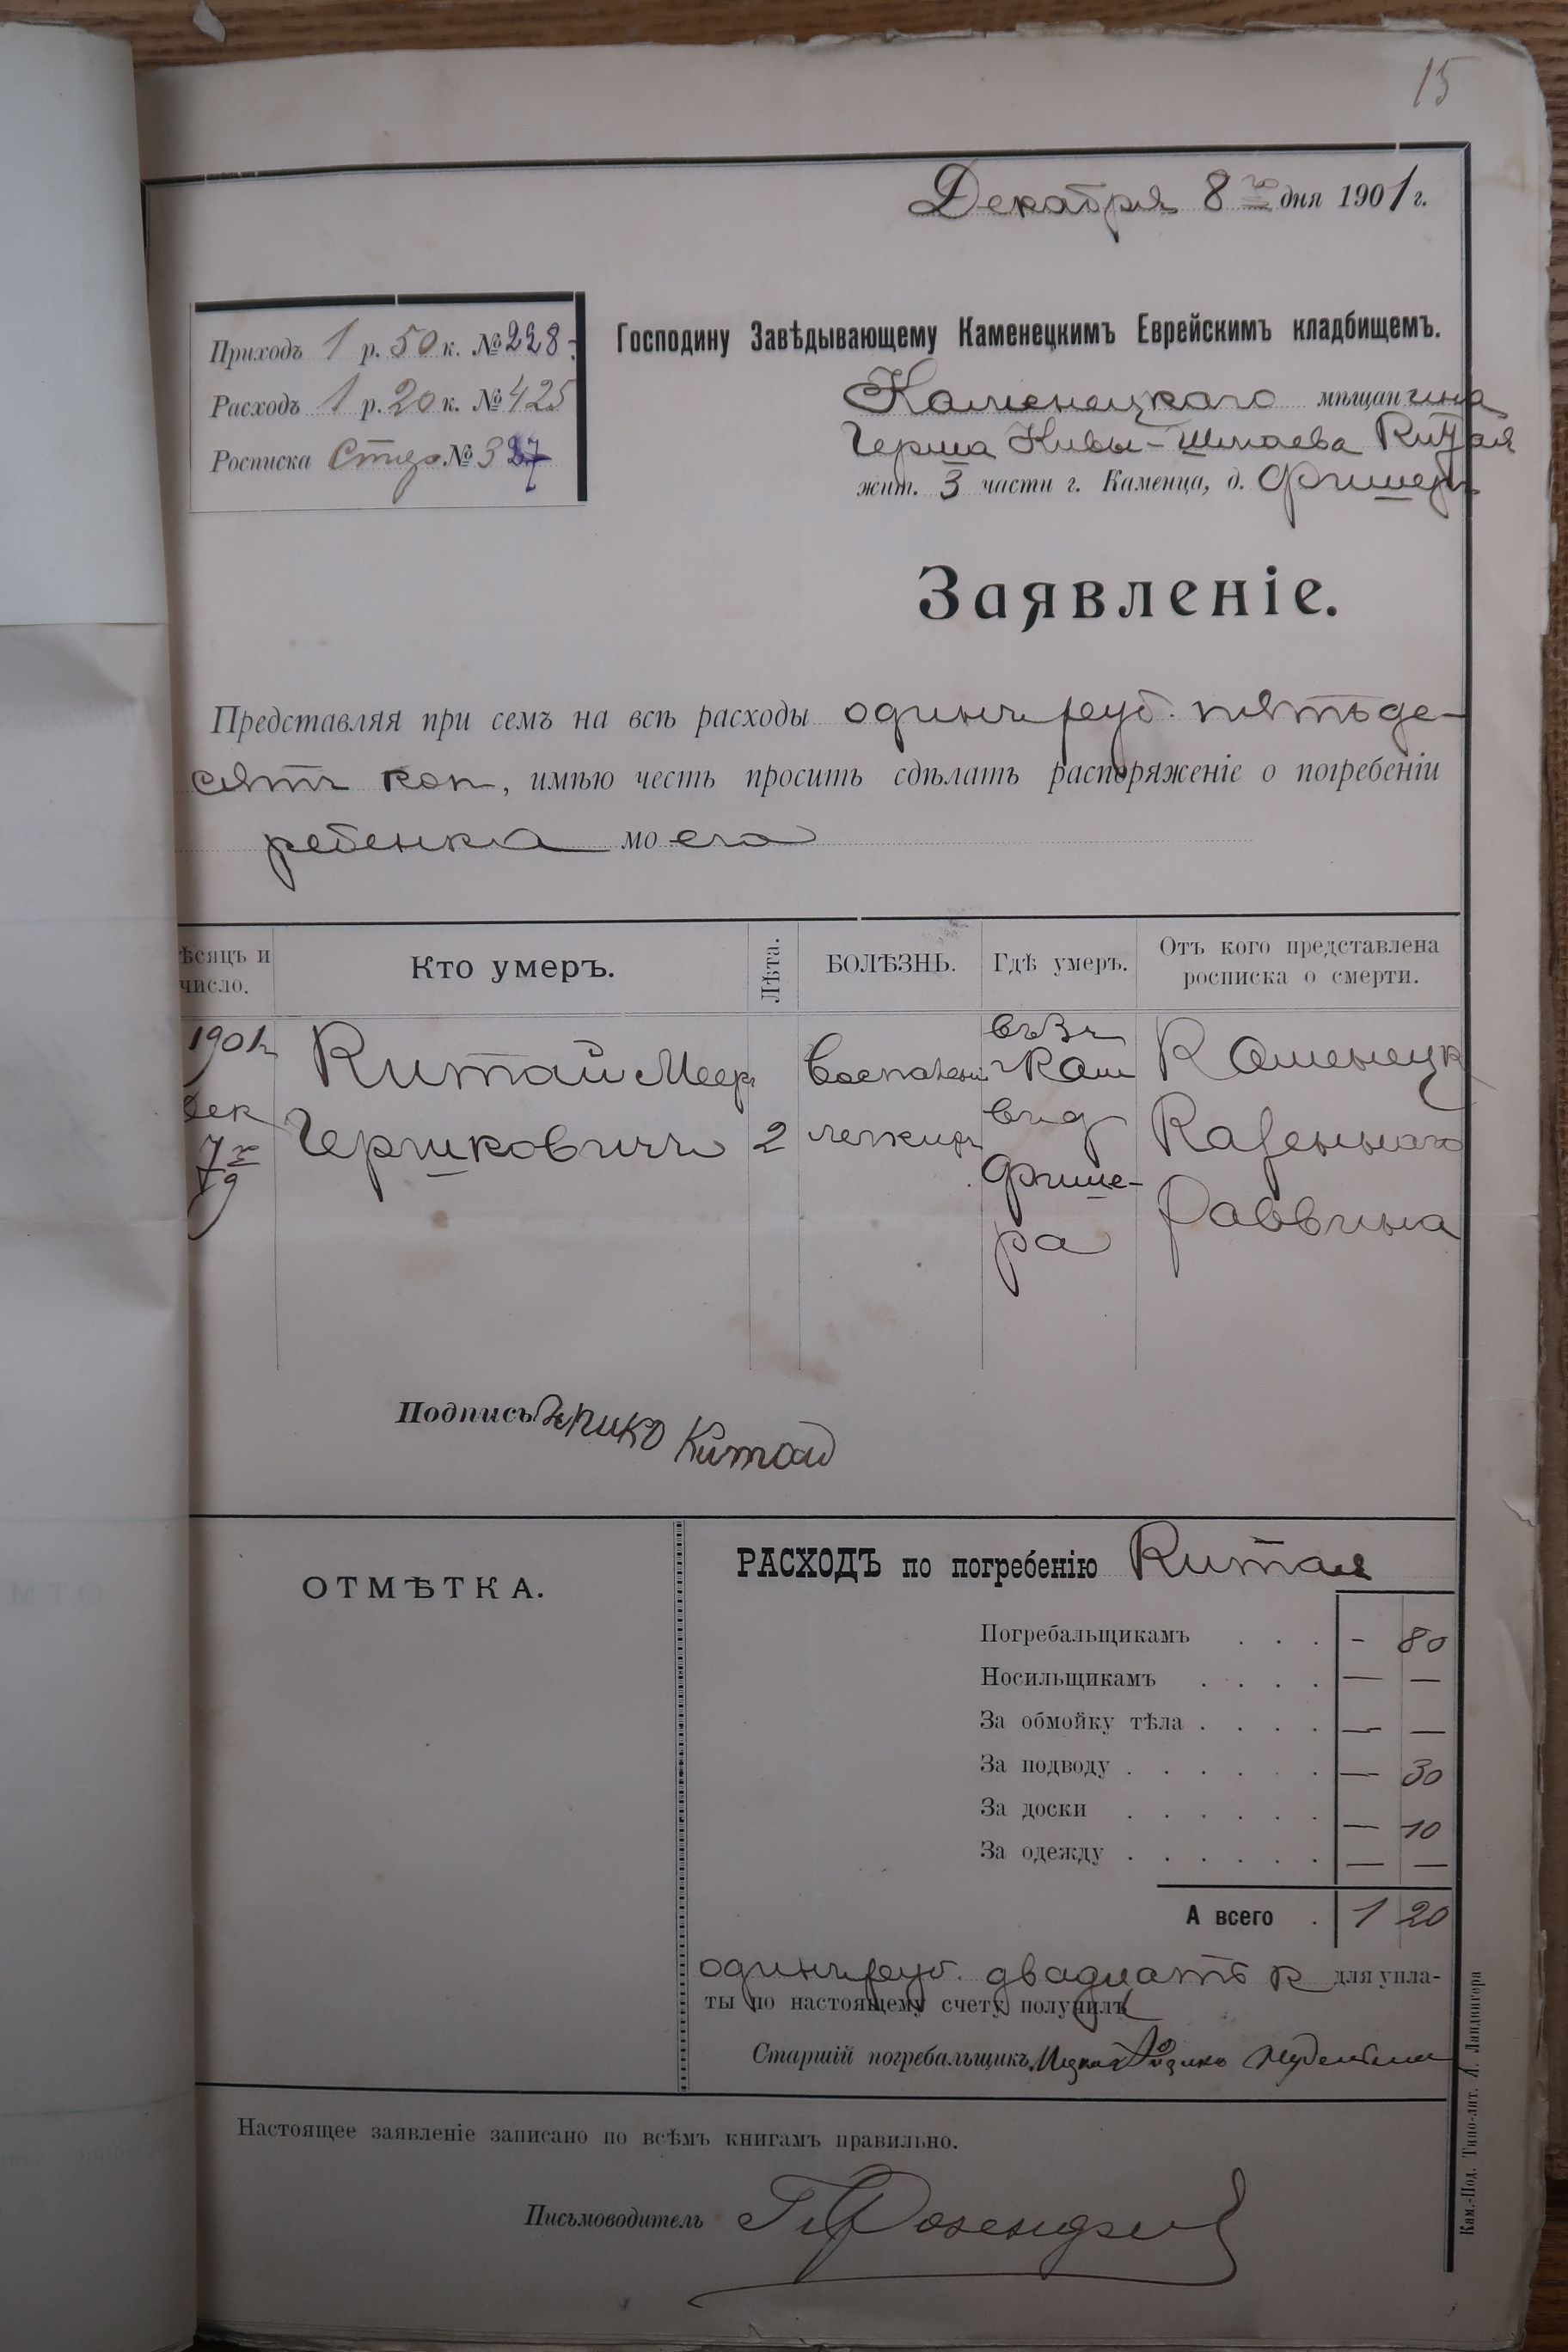 15
Декабря 8 го дня 1901 г.
Приходъ 1 р. 50 к. № 228
Расходъ 1 р. 20 к. № 425
Росписка № 327
Господину Завѣдывающему Каменецкимъ Еврейскимъ кладбищемъ.
Каменецкаго мѣщанина
Герша Кивы-Шмаева Китая
жит. 3 части г. Каменца, д. Фишера
Заявленіе.
Представляя при семъ на всѣ расходы одинъ руб. пятьде-
сятъ коп, имѣю честь просить сдѣлать распоряженіе о погребеніи
ребенка моего
ѣсяцъ и число.
Кто умеръ.
Лѣта.
БОЛѢЗНЬ.
Гдѣ умеръ.
Отъ кого представлена росписка о смерти.
1901 дек 7 д
Китай Меер Гершковичъ
2
Воспален легких
въ 3 ч Кам в д Фишера
Каменецк Казеннаго Раввина
Подпись Китай
ОТМѢТКА.
РАСХОДЪ по погребенію Китая
Погребальщикамъ . . . - 80
Носильщикамъ . . . . — —
За обмойку тѣла . . . . — —
За подводу . . . . . . — 30
За доски . . . . . . — 10
За одежду . . . . . . — —
А всего . 1 20
одинъ руб. двадцать к для упла-
ты по настоящему счету получилъ
Старшій погребальщикъ
Настоящее заявленіе записано по всѣмъ книгамъ правильно.
Письмоводитель
Кам.-Под. Типо-лит. Л. Ландвигера